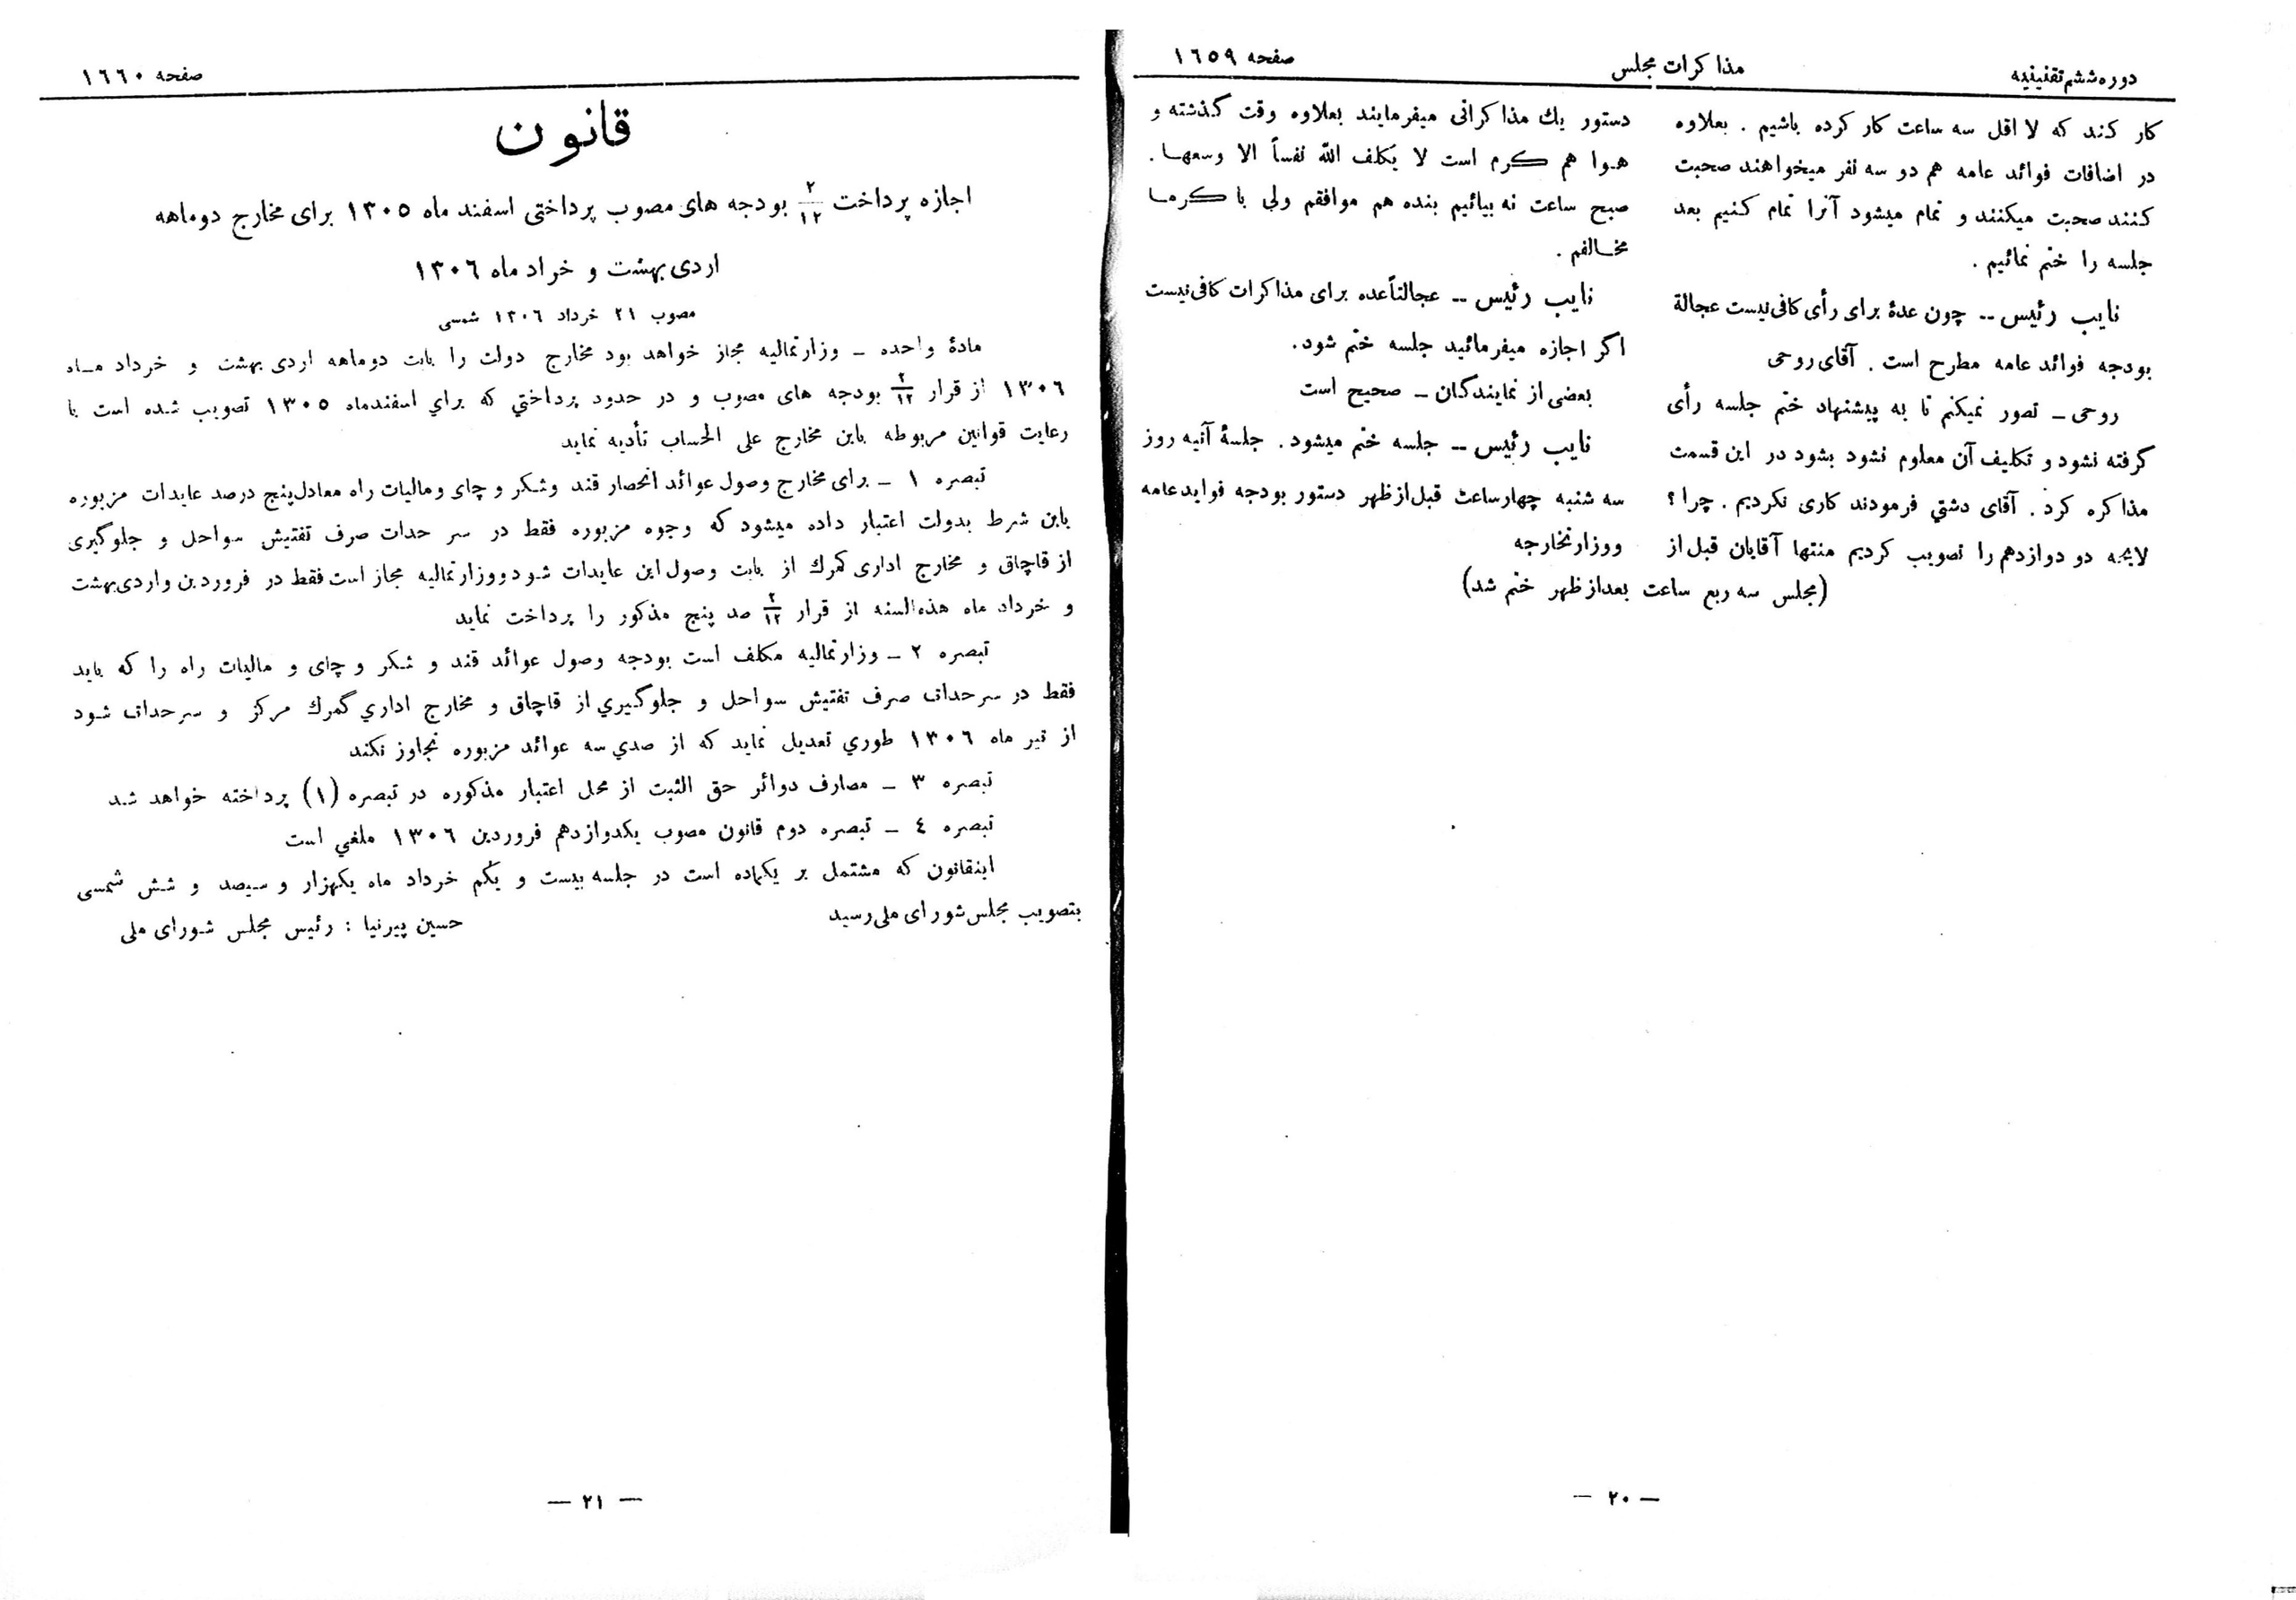 دوره ششم تقنینیه
مذاکرات مجلس
صفحه ۱۶۵۹
کار کند که لا اقل سه ساعت کار کرده باشیم . بعلاوه
در اضافات فوائد عامه هم دو سه نفر میخواهند صحبت
کنند صحبت میکنند و تمام میشود آنرا تمام کنیم بعد
جلسه را ختم نمائیم .
نایب رئیس -- چون عدهٔ برای رأی کافی نیست عجالة
بودجه فوائد عامه مطرح است . آقای روحی
روحی ـ تصور نمیکنم تا به پیشنهاد ختم جلسه رأی
گرفته نشود و تکلیف آن معلوم نشود بشود در این قسمت
مذاکره کرد . آقای دشتی فرمودند کاری نکردیم . چرا ؟
لایحه دو دوازدهم را تصویب کردیم منتها آقایان قبل از
دستور یك مذاکراتی میفرمایند بعلاوه وقت گذشته و
هوا هم گرم است لا یکلف الله نفساً الا وسعها .
صبح ساعت نه بیائیم بنده هم موافقم ولی با گرما
مخالفم .
نایب رئیس -- عجالتاً عده برای مذاکرات کافی نیست
اگر اجازه میفرمائید جلسه ختم شود .
بعضی از نمایندگان ـ صحیح است
نایب رئیس -- جلسه ختم میشود . جلسهٔ آتیه روز
سه شنبه چهار ساعت قبل از ظهر دستور بودجه فواید عامه
و وزارتخارجه
(مجلس سه ربع ساعت بعد از ظهر ختم شد)
— ۲۰ —
صفحه ۱۶۶۰
قانون
اجازه پرداخت ۲/۱۲ بودجه های مصوب پرداختی اسفند ماه ۱۳۰۵ برای مخارج دوماهه
اردی بهشت و خرداد ماه ۱۳۰۶
مصوب ۲۱ خرداد ۱۳۰۶ شمسی
مادهٔ واحده ـ وزارتمالیه مجاز خواهد بود مخارج دولت را بابت دوماهه اردی بهشت و خرداد ماه
۱۳۰۶ از قرار ۲/۱۲ بودجه های مصوب و در حدود پرداختی که برای اسفندماه ۱۳۰۵ تصویب شده است با
رعایت قوانین مربوطه باین مخارج علی الحساب تأدیه نماید
تبصره ۱ ـ برای مخارج وصول عوائد انحصار قند و شکر و چای و مالیات راه معادل پنج درصد عایدات مزبوره
باین شرط بدولت اعتبار داده میشود که وجوه مزبوره فقط در سر حدات صرف تفتیش سواحل و جلوگیری
از قاچاق و مخارج اداری گمرك از بابت وصول این عایدات شود و وزارتمالیه مجاز است فقط در فروردین و اردی بهشت
و خرداد ماه هذه السنه از قرار ۲/۱۲ صد پنج مذکور را پرداخت نماید
تبصره ۲ ـ وزارتمالیه مکلف است بودجه وصول عوائد قند و شکر و چای و مالیات راه را که باید
فقط در سرحدات صرف تفتیش سواحل و جلوگیری از قاچاق و مخارج اداری گمرك مرکز و سرحدات شود
از تیر ماه ۱۳۰۶ طوری تعدیل نماید که از صدی سه عوائد مزبوره تجاوز نکند
تبصره ۳ ـ مصارف دوائر حق الثبت از محل اعتبار مذکوره در تبصره (۱) پرداخته خواهد شد
تبصره ٤ ـ تبصره دوم قانون مصوب یکدوازدهم فروردین ۱۳۰۶ ملغی است
اینقانون که مشتمل بر یکماده است در جلسه بیست و یکم خرداد ماه یکهزار و سیصد و شش شمسی
بتصویب مجلس شورای ملی رسید
حسین پیرنیا : رئیس مجلس شورای ملی
— ۲۱ —